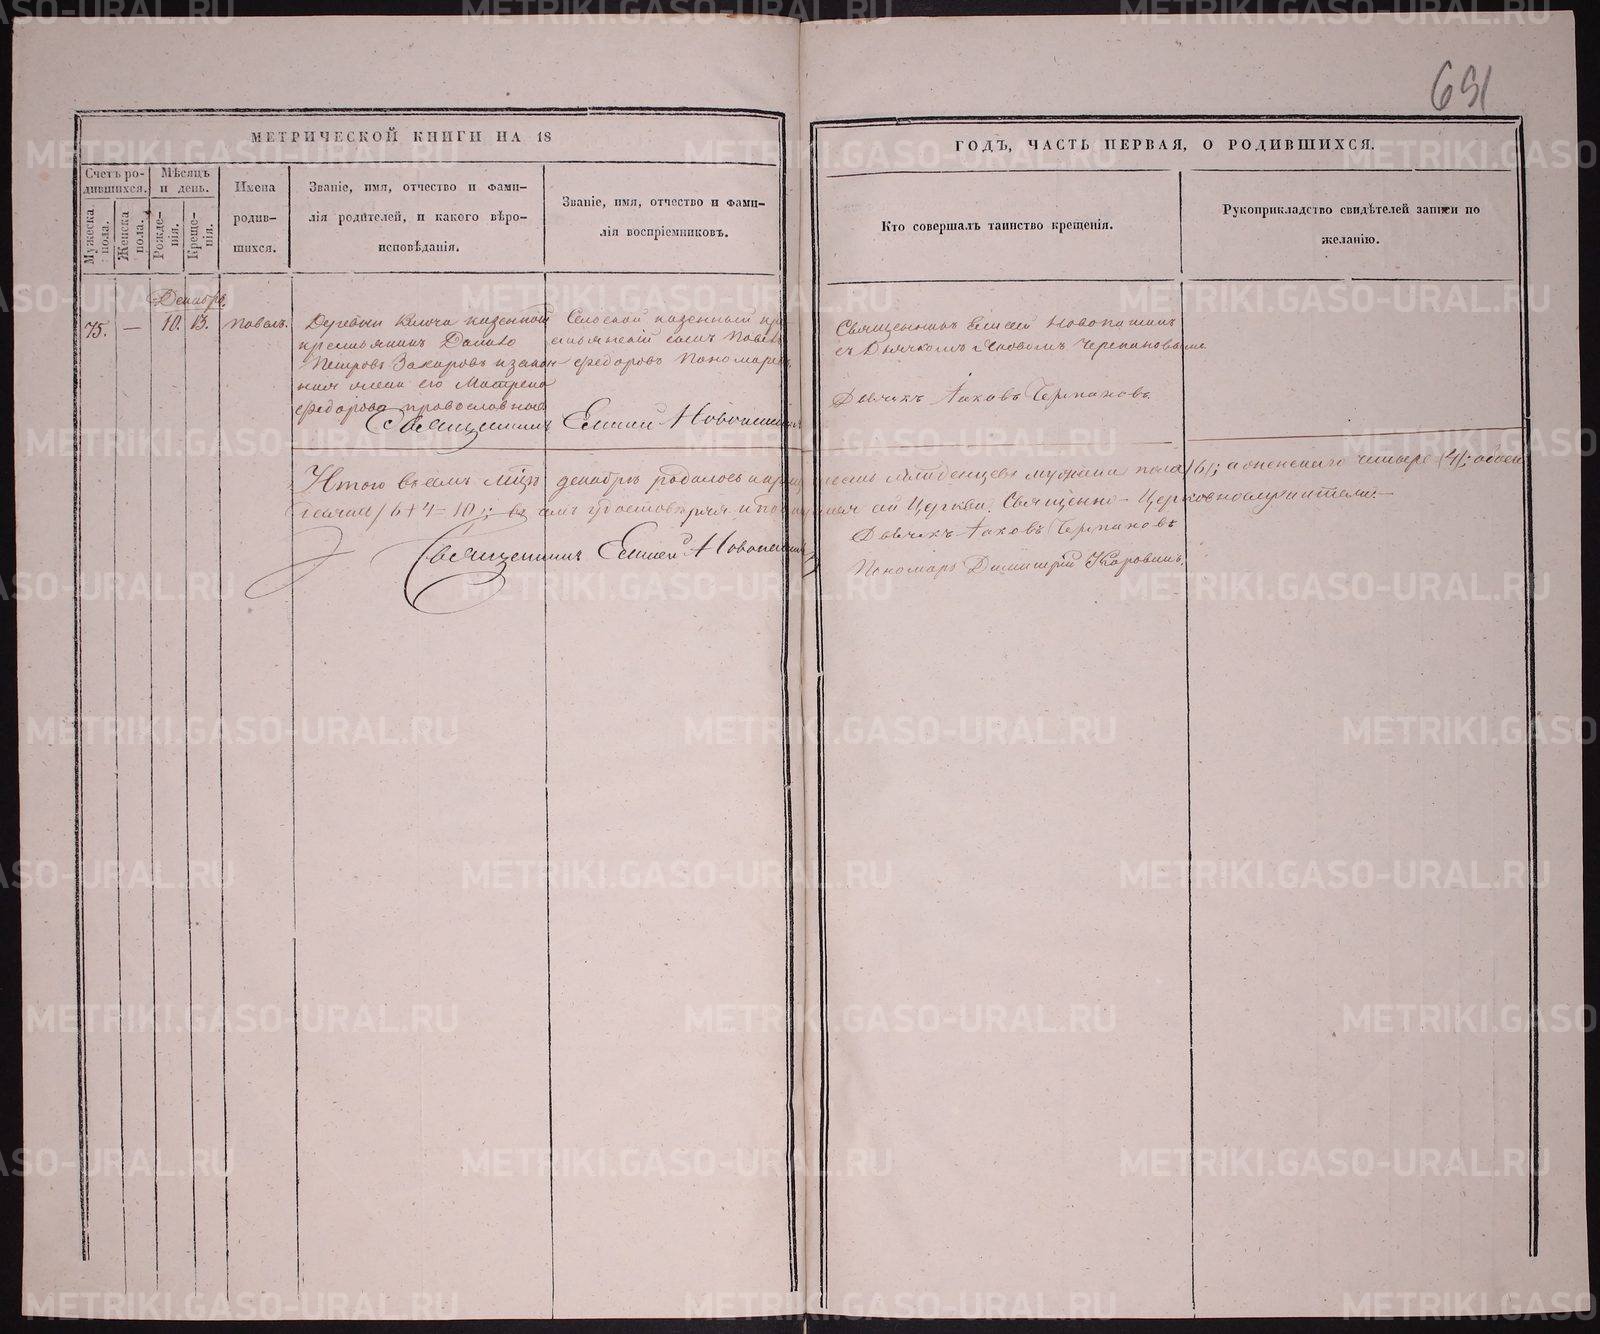 691
МЕТРИЧЕСКОЙ КНИГИ НА 18
ГОДЪ, ЧАСТЬ ПЕРВАЯ, О РОДИВШИХСЯ.
Счетъ ро-
дившихся.
Мужеска
пола.
Женска
пола.
Мѣсяцъ
и день.
Рожде-
нія.
Креще-
нія.
Имена
родив-
шихся.
Званіе, имя, отчество и фами-
лія родителей, и какого вѣро-
исповѣданія.
Званіе, имя, отчество и фами-
лія воспріемниковъ.
Кто совершалъ таинство крещенія.
Рукоприкладство свидѣтелей записи по
желанію.
Декабрь.
75. — 10. 13. Павелъ.
Деревни Ключа казенной
крестьянинъ
Петровъ Захаровъ и закон-
ная жена его Матрена
Федорова православные
Сельской казенный кре
стьянскій сынъ Павелъ
Федоровъ Пономарев
Священникъ Елисей Новопашин
Священникъ Елисей Новопашинъ
съ Дьячкомъ Яковомъ Черепановымъ
Дьячекъ Іаковъ Черпановъ
Итого въ семъ мѣсяцѣ декабрѣ родилось младенцевъ мужеска пола /6/; а женскаго четыре /4/; обоего
6+4=10 Церкви. Священно-Церковнослужители—
Священникъ Елисей Новопашинъ
Дьячекъ Іаковъ Черпановъ
Пономарь Димитрій Коровинъ
METRIKI.GASO-URAL.RU